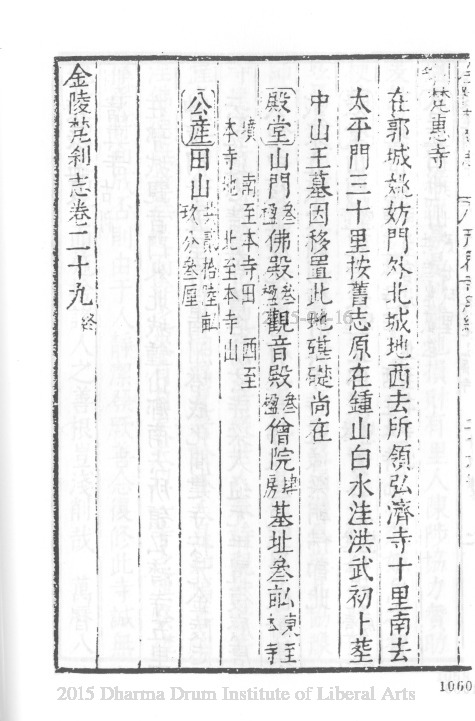 梵惠寺
在郭城姚坊門外北城地西去所領弘濟寺十里南去
太平門三十里按舊志原在鍾山白水洼洪武初卜葬
中山王墓因移置此地礎尚在
殿堂山門叁楹佛殿叁楹觀音殿叁楹僧院肆房基址叁畝東至本寺
墳南至本寺田西至本寺地北至本寺山
公産田山共貳拾陸畝玖分叁厘
金陵梵刹志卷二十九 終
1060
2015 Dharma Drum Institute of Liberal Arts